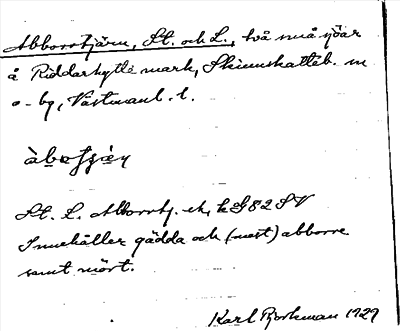 Abborrtjärn, St. och L., två små sjöar
å Riddarhytte mark, Skinnskatteb. sn
o - bg, Västmanl. l.
àbo
St. L. Abborrtj. ek. bl 82 SV
Innehåller gädda och (mest) abborre
samt mört.
Karl Bjorkman 1929